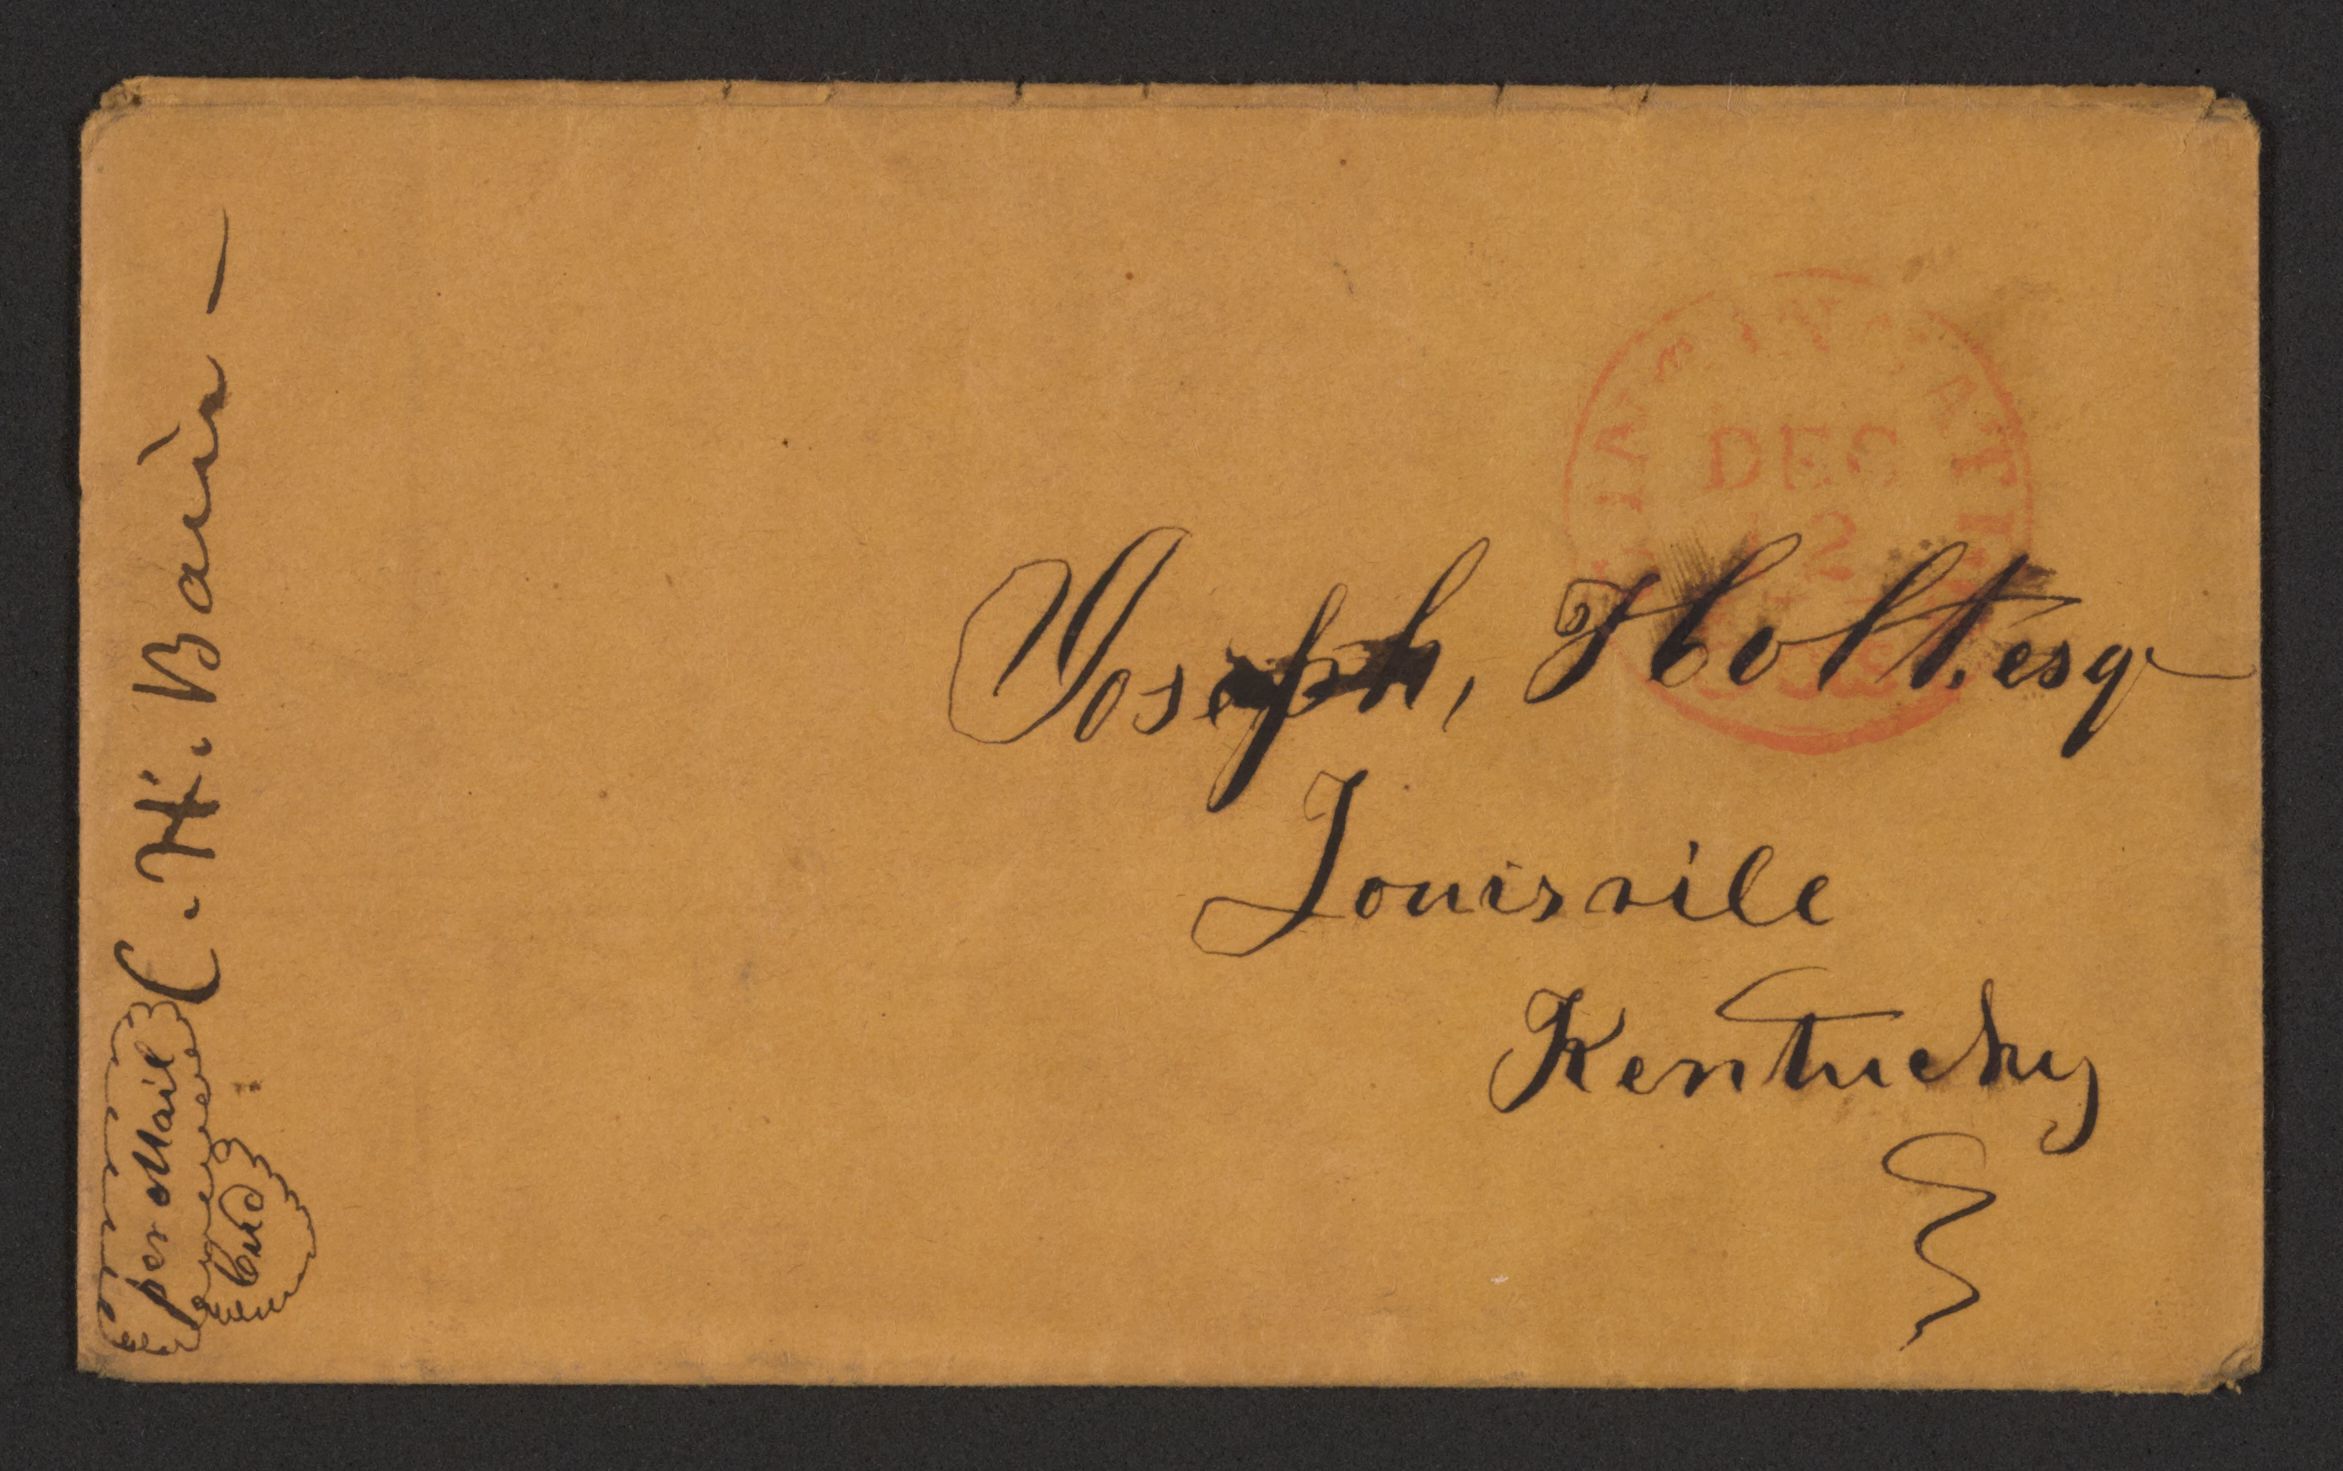 C. H. Bain —
per Mail
CINCINNATI
DEC
12
Joseph, Holt. esq
Louisvile
Kentucky